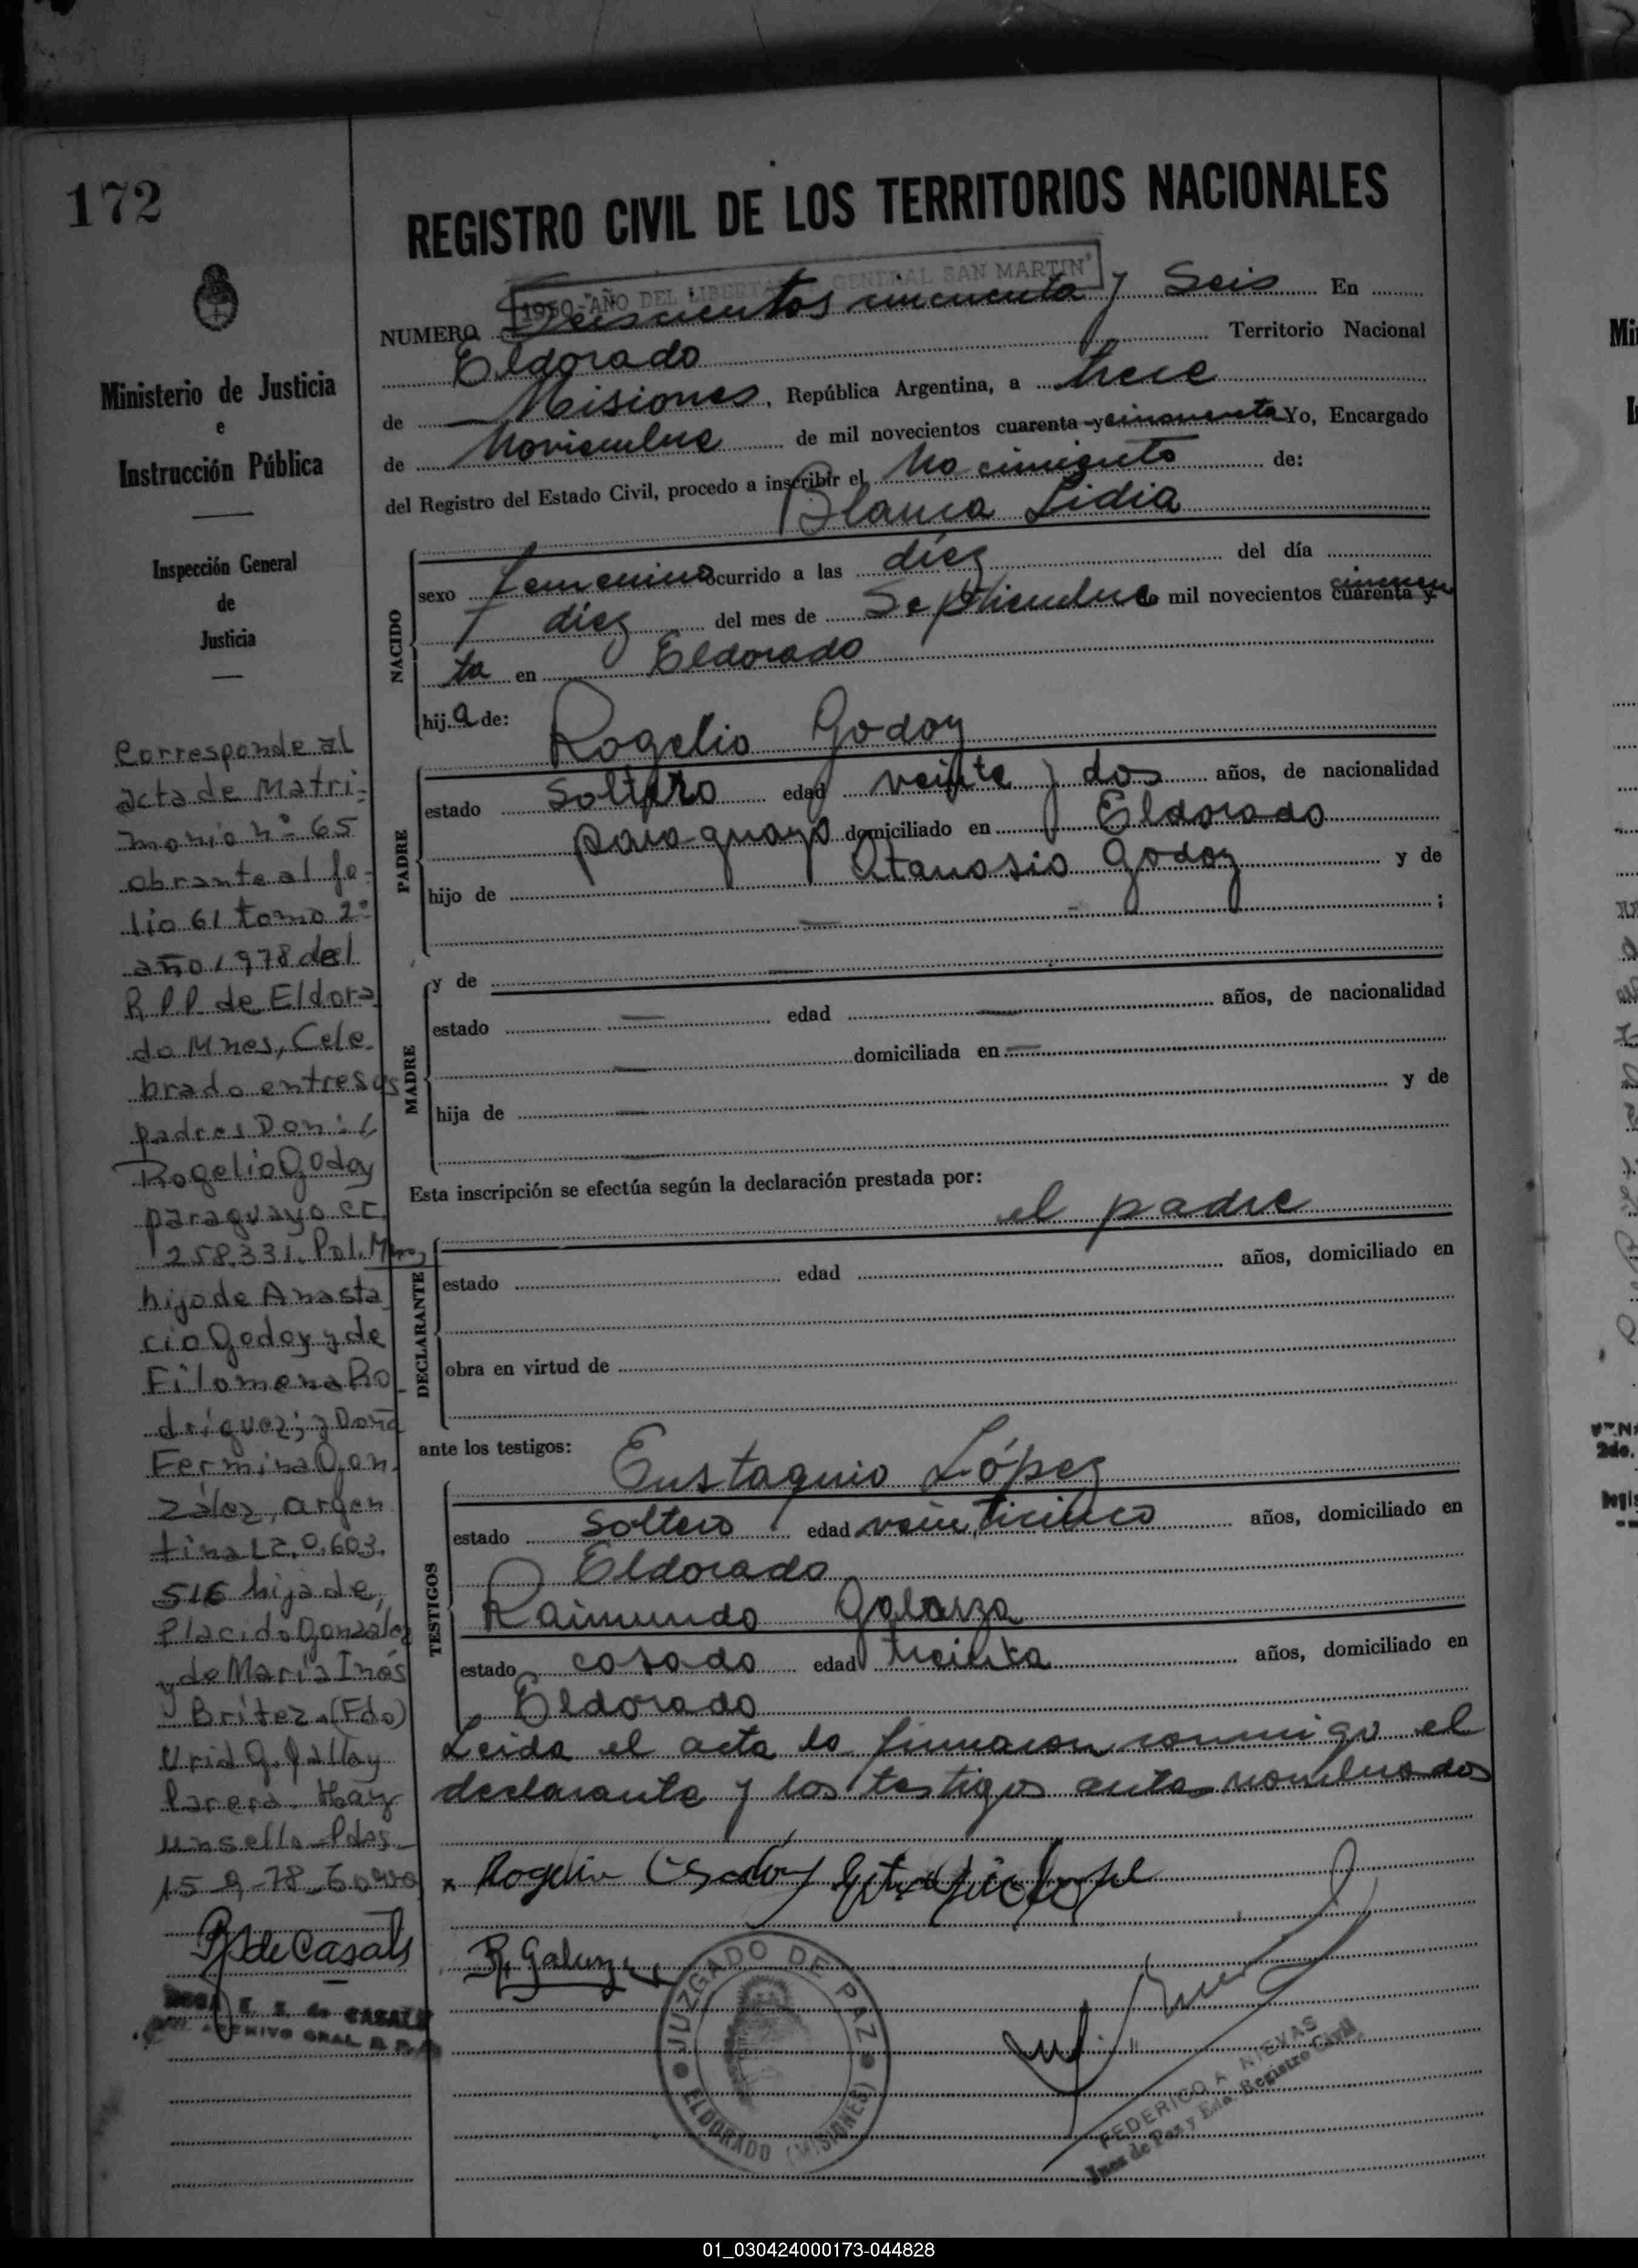 172
REGISTRO CIVIL DE LOS TERRITORIOS NACIONALES
1950-"AÑO DEL LIBERTADOR GENERAL SAN MARTIN"
NUMERO Seiscientos cincuenta y Seis En
Eldorado Territorio Nacional
de Misiones, República Argentina, a trece
de Noviembre de mil novecientos cuarenta y cincuenta Yo, Encargado
del Registro del Estado Civil, procedo a inscribir el Nacimiento de:
Blanca Lidia
NACIDO
sexo femenino ocurrido a las diez del día
diez del mes de Septiembre de mil novecientos cuarenta y cincuen
ta en Eldorado
hija de: Rogelio Godoy
PADRE
estado soltero edad veinte y dos años, de nacionalidad
paraguayo domiciliado en Eldorado
hijo de Atanasio Godoy y de
;
MADRE
y de
estado edad años, de nacionalidad
domiciliada en
hija de y de
Esta inscripción se efectúa según la declaración prestada por:
el padre
DECLARANTE
estado edad años, domiciliado en
obra en virtud de
ante los testigos: Eustaquio López
TESTIGOS
estado soltero edad veinticinco años, domiciliado en
Eldorado
Raimundo Galarza
estado casado edad treinta años, domiciliado en
Eldorado
Leida el acta la firmaron conmigo el
declarante y los testigos antes nombrados
x Rogelio Godoy
R. Galarza
JUZGADO DE PAZ
ELDORADO (MISIONES)
FEDERICO A. NIEVAS
Juez de Paz y Edo. Registro Civil
Ministerio de Justicia
e
Instrucción Pública
Inspección General
de
Justicia
Corresponde al
acta de Matri-
monio nº 65
obrante al fo-
lio 61 tomo 2º
año 1978 del
R.P.P. de Eldora
do Mnes, Cele
brado entre sus
padres Don:
Rogelio Godoy
paraguayo CI.
258.331. Pol. Mnes
hijo de Anasta
cio Godoy y de
Filomena Ro
dríguez; y Doña
Fermina Gon
zález, argen
tina LC. 0.603.
516 hija de,
Placido González
y de María Inés
Britez. (Fdo)
Larera. Hay
un sello Pdas.
15-9-78
R. de Casals
de CASALS
ARCHIVO GRAL. R.P.P.
01_030424000173-044828